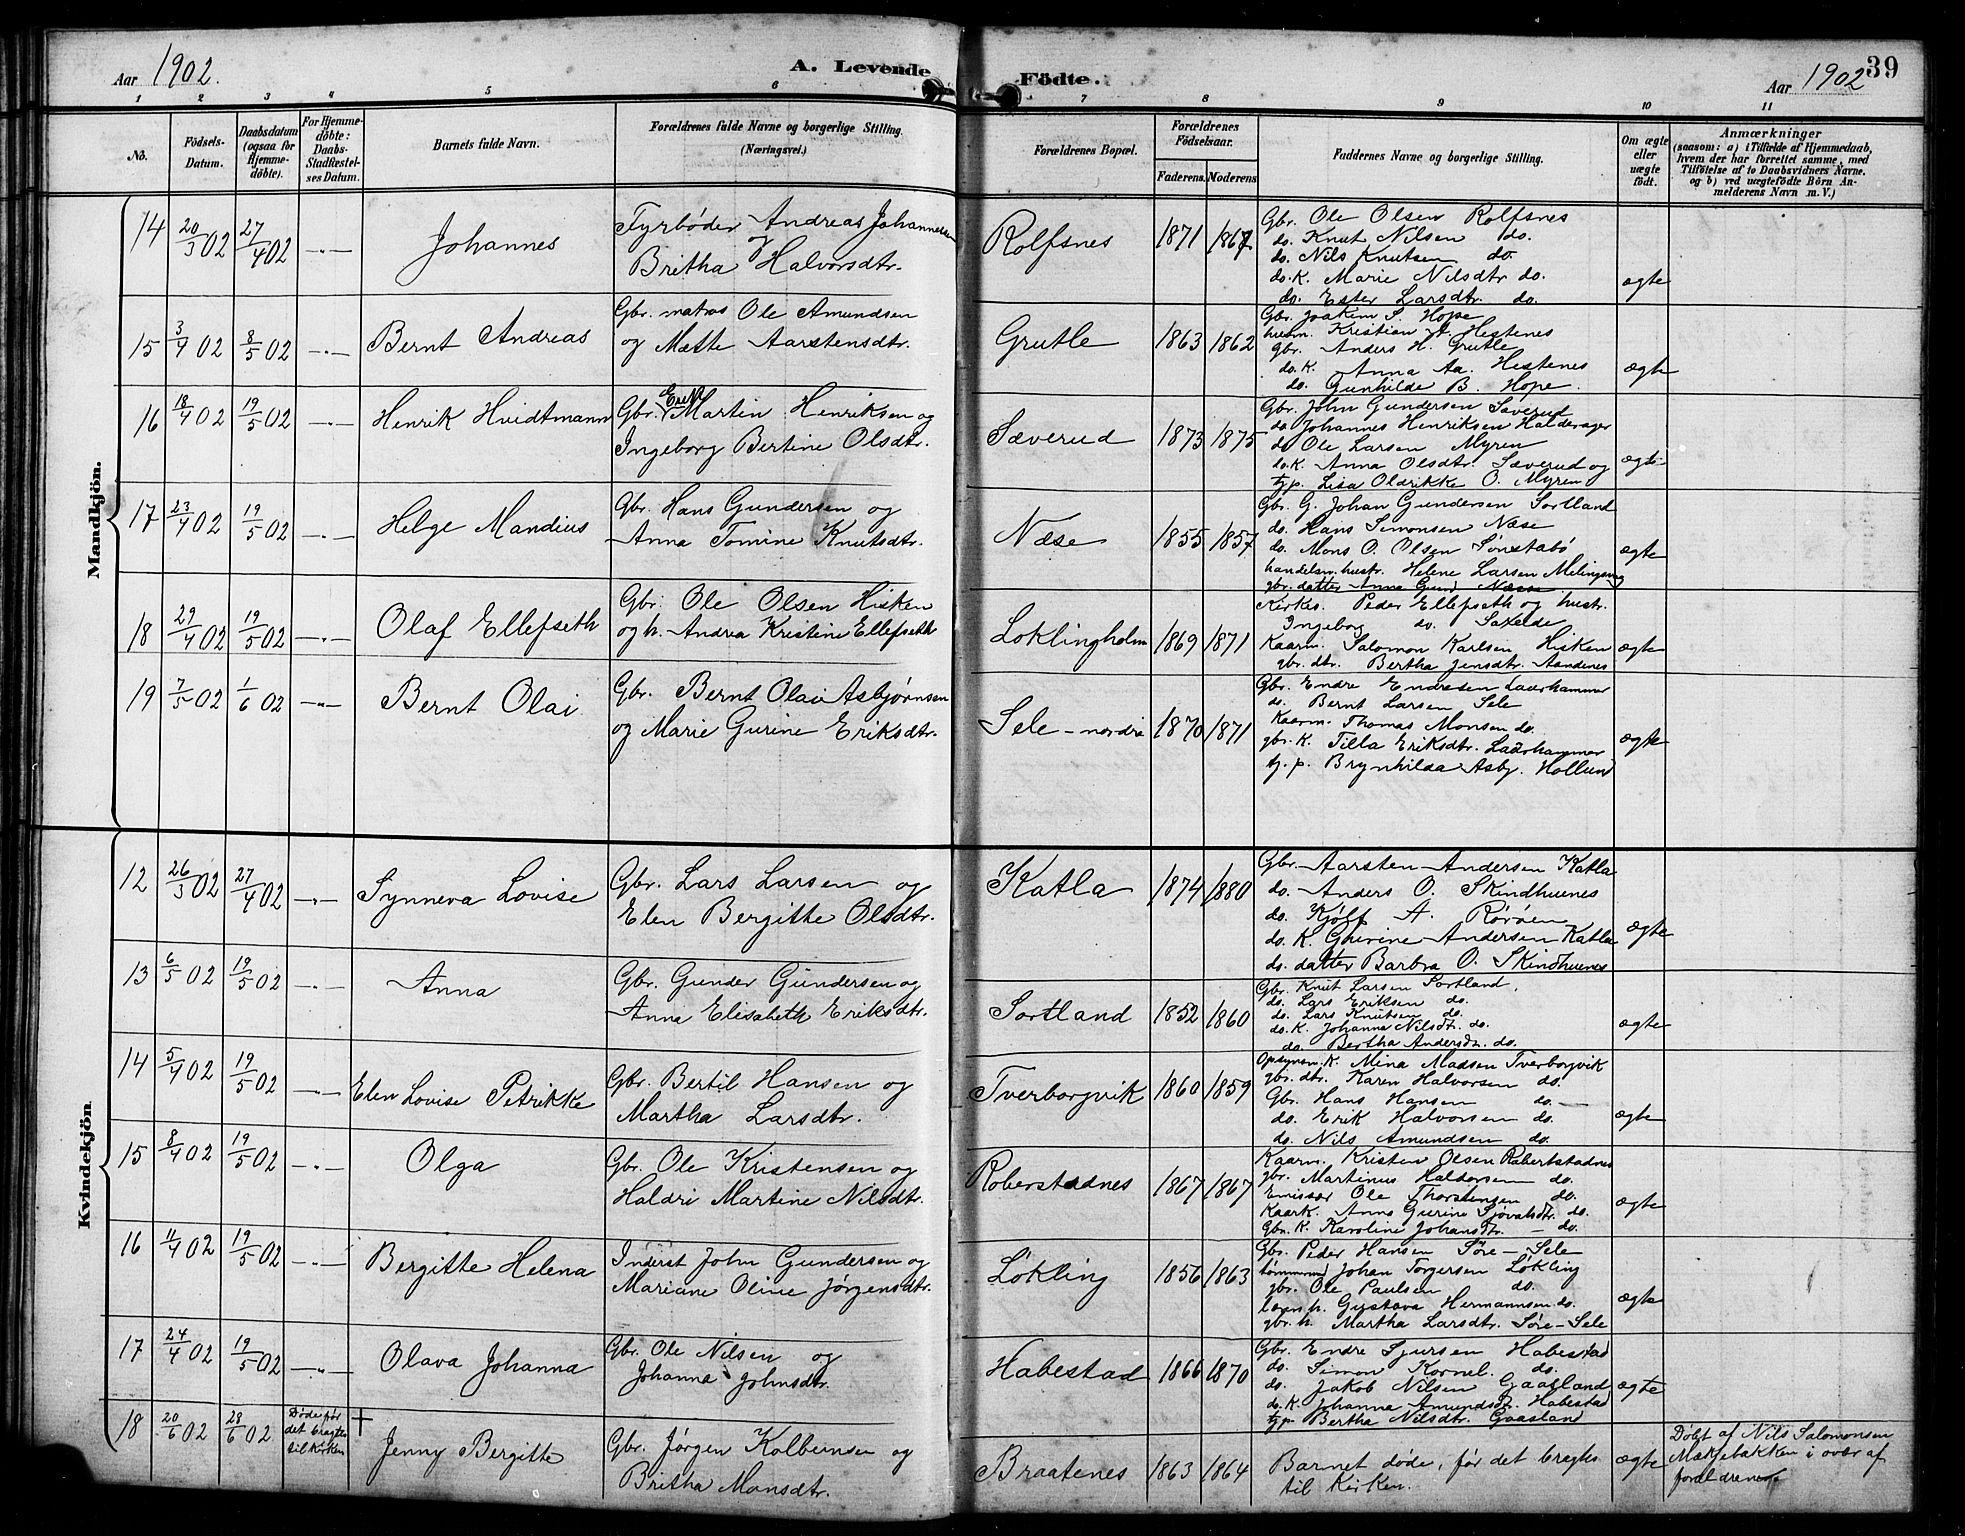 Aar 1902.
A. Levende Födte.
39
Aar 1902
1 2 3 4 5 6 7 8 9 10 11
No.
Födsels-Datum.
Daabsdatum (ogsaa for Hjemme-döbte).
For Hjemme-döbte: Daabs-Stadfæstel-ses Datum.
Barnets fulde Navn.
Forældrenes fulde Navne og borgerlige Stilling. (Næringsvei.)
Forældrenes Bopæl.
Forældrenes Födselsaar.
Faderens. Moderens
Faddernes Navne og borgerlige Stilling.
Om ægte eller uægte födt.
Anmærkninger
(saasom: a) i Tilfælde af Hjemmedaab, hvem der har forrettet samme, med Tilföielse af to Daabsvidners Navne. og b) ved uægtefödte Börn An-melderens Navn m. V.)
Mandkjön.
14 20/3 02 27/4 02 -"- Johannes
Fyrbøder Andreas Johannessen
og
Britha Halvorsdtr.
Rolfsnes 1871 1867
Gbr. Ole Olsen Rolfsnes
do. Knut Nilsen do.
do. Nils Knutsen do
do. K. Marie Nilsdtr do.
do. Ester Larsdtr. do.
ægte
15 3/4 02 8/5 02 -"- Bernt Andreas
Gbr. matros Ole Amundsen
og Mætte Aarstensdtr.
Grutle 1863 1862
Gbr. Joakim S. Hope
husm. Kristian J. Hestenes
gbr. Anders H. Grutle
do. K. Anna Aa. Hestenes
do. Gunhilde B. Hope.
ægte
16 18/4 02 19/5 02 -"- Henrik Hvidtmann
Gbr. Erik Martin Henriksen og
Ingeborg Bertine Olsdtr.
Sæverud 1873 1875
Gbr. John Gundersen Sæverud
do Johannes Henriksen Halderager
do Ole Larsen Myren
do. K. Anna Olsdtr. Sæverud og
tj.p. Lisa Oldrikke O. Myren
ægte
17 23/4 02 19/5 02 -"- Helge Mandius
Gbr. Hans Gundersen og
Anna Tomine Knutsdtr.
Næse 1855 1857
Gbr. G. Johan Gundersen Sortland
do. Hans Simonsen Næse
do. Mons O. Olsen Sønstabø
handelsm. hustr. Helene Larsen Melingsvaag
gbr. datter Anna Gund Næse
ægte
18 29/4 02 19/5 02 -"- Olaf Ellefseth
Gbr. Ole Olsen Hisken
og h. Andrea Kristine Ellefseth
Loklingholm 1869 1871
Kirkes. Peder Ellefseth og hustr.
Ingeborg do.
Kaarm. Salomon Karlsen Hisken
gbr. dtr. Bertha Jensdtr. Aandenes
ægte
19 7/5 02 1/6 02 -"- Bernt Olai
Gbr. Bernt Olai Asbjørnsen
og Marie Gurine Eriksdtr.
Sele - nordre 1870 1871
Gbr. Endre Endresen Laurhammer
do. Bernt Larsen Sele
Kaarm. Thomas Monsen do.
gbr. K. Tilla Eriksdtr. Laurhammer
tj. p. Brynhilda Asbj. Hollund
ægte
Kvindekjön
12 26/3 02 27/4 02 -"- Synneva Lovise
Gbr. Lars Larsen og
Elen Bergitte Olsdtr.
Katla 1874 1880
Gbr. Aarsten Andersen Katla
do. Anders O. Skindhuenes
do. Kjölf A. Rörøen
do. K. Gurine Andersen Katla
do. datter Barbra O. Skindhuenes
ægte
13 6/5 02 19/5 02 -"- Anna
Gbr. Gunder Gundersen og
Anna Elisabeth Eriksdtr.
Sortland 1852 1860
Gbr. Knut Larsen Sortland,
do. Lars Eriksen do.
do. Lars Knutsen do.
do. K. Johanna Nilsdtr. do.
do. Bertha Andersdtr. do.
ægte
14 5/4 02 19/5 02 -"- Elen Lovise Petrikke
Gbr. Bertil Hansen og
Martha Larsdtr.
Tverborgvik 1860 1859
Opsynsm. K. Mina Madsen Tverborgvik
gbr. dtr. Karen Halvorsen do.
Gbr. Hans Hansen do.
do. Erik Halvorsen do.
do. Nils Amundsen do.
ægte
15 8/4 02 19/5 02 -"- Olga
Gbr. Ole Kristensen og
Haldri Martine Nilsdtr.
Roberstadnes 1867 1867
Kaarm. Kristen Olsen Robertstadnes
gbr. Martinus Haldorsen do.
Emissær Ole Thorstensen do.
Kaark. Anna Gurine Sjovatsdtr. do.
Gbr. K. Karoline Johansdtr. do.
ægte
16 11/4 02 19/5 02 -"- Bergitte Helena
Inderst John Gundersen og
Mariane Oline Jørgensdtr.
Lokling 1856 1863
Gbr. Peder Hansen Søre - Sele
tømmermd Johan Torgersen Lokling
gbr. Ole Paulsen do.
h. Gustava Hermannsen do.
gbr. h. Martha Larsdtr. Søre-Sele
ægte
17 24/4 02 19/5 02 -"- Olava Johanna
Gbr. Ole Nilsen og
Johanna Johnsdtr.
Habestad 1866 1870
Gbr. Endre Sjursen Habestad
do. Simon Kornel. do.
do. Jakob Nilsen Gaasland
do. K. Johanna Amundsdtr. Habestad
tj.p Bertha Nilsdtr. Gaasland
ægte
18 20/6 02 23/6 02
Døde før det bragtes til Kirken
† Jenny Bergitte
Gbr. Jørgen Kolbeinsen og
Britha Monsdtr.
Braatenes 1863 1864
Barnet døde, før det bragtes
til Kirken.
ægte
Døbt af Nils Salomonsen
Mækjebakken i nær af
forældrene